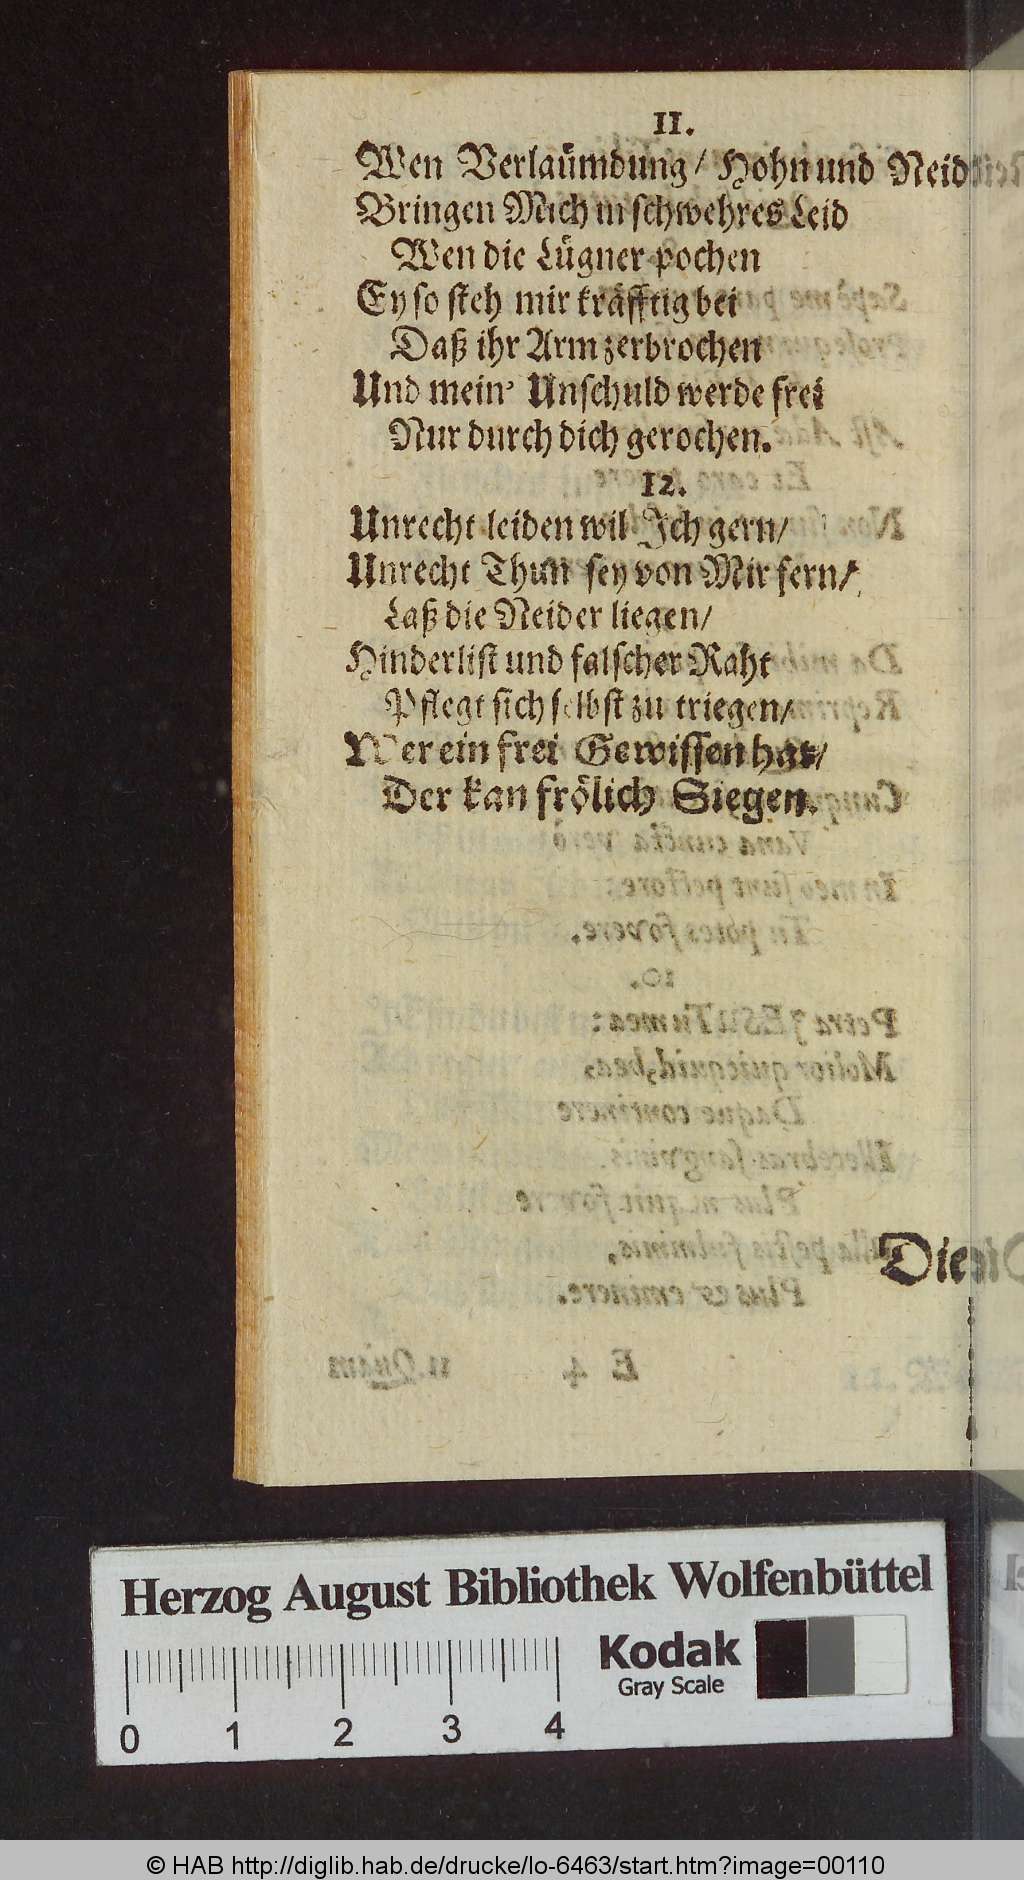 11.
Wen Verlaümdung / Hohn und Neid
Bringen Mich in schwehres Leid
Wen die Lügner pochen
Ey so steh mir kräfftig bei
Daß ihr Arm zerbrochen
Und mein' Unschuld werde frei
Nur durch dich gerochen.
12.
Unrecht leiden wil Ich gern /
Unrecht Thun sey von Mir fern /
Laß die Neider liegen /
Hinderlist und falscher Raht
Pflegt sich selbst zu triegen /
Wer ein frei Gewissen hat /
Der kan frölich Siegen.
Die
Herzog August Bibliothek Wolfenbüttel
Kodak
Gray Scale
0 1 2 3 4
© HAB http://diglib.hab.de/drucke/lo-6463/start.htm?image=00110